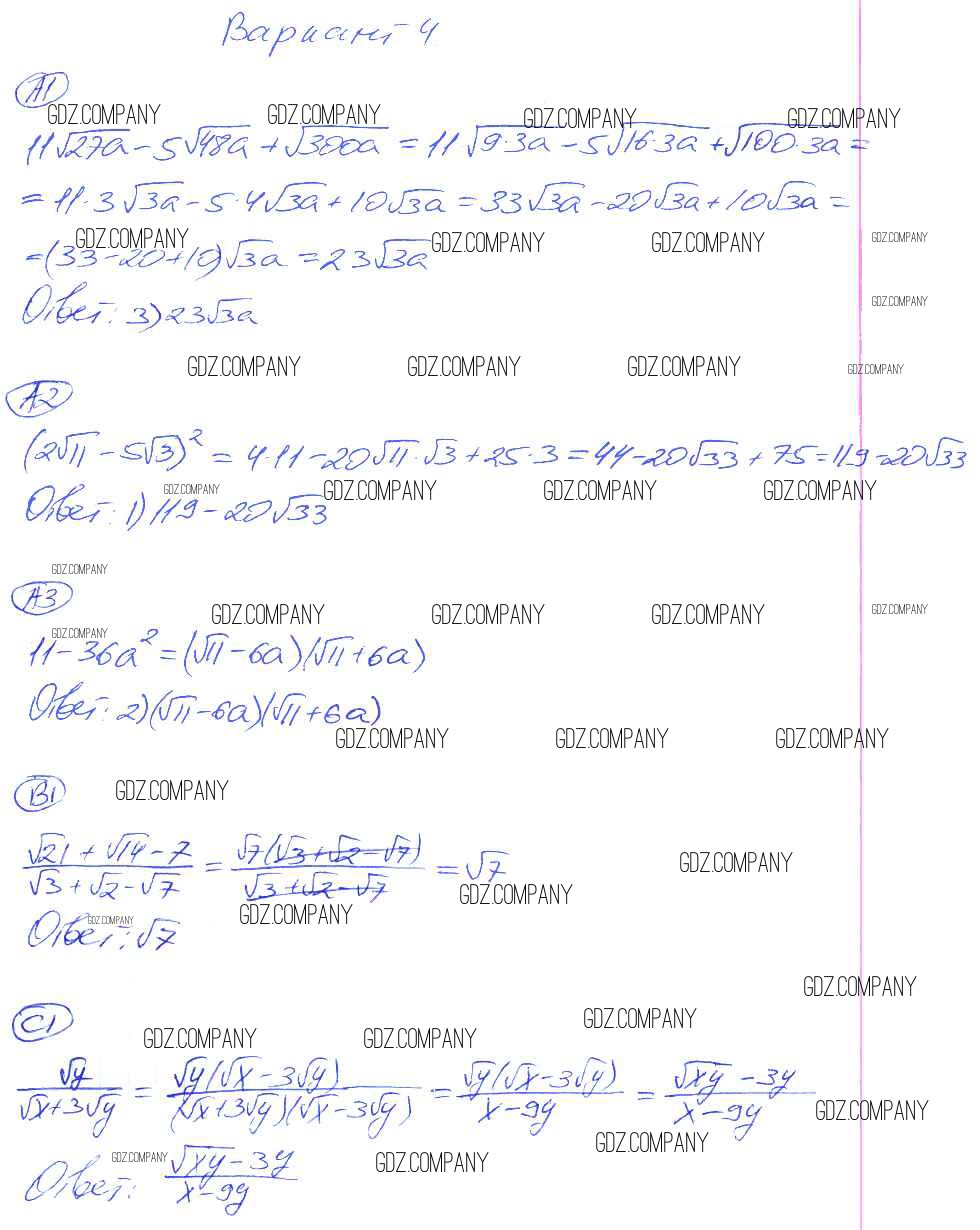 Вариант 4
А1
GDZ.COMPANY GDZ.COMPANY GDZ.COMPANY GDZ.COMPANY
11√27a - 5√48a + √300a = 11√9·3a - 5√16·3a + √100·3a =
= 11·3√3a - 5·4√3a + 10√3a = 33√3a - 20√3a + 10√3a =
GDZ.COMPANY GDZ.COMPANY GDZ.COMPANY GDZ.COMPANY
= (33 - 20 + 10)√3a = 23√3a
GDZ.COMPANY
Ответ: 3) 23√3a
GDZ.COMPANY GDZ.COMPANY GDZ.COMPANY GDZ.COMPANY
А2
(2√11 - 5√3)² = 4·11 - 20√11·√3 + 25·3 = 44 - 20√33 + 75 = 119 - 20√33
GDZ.COMPANY GDZ.COMPANY GDZ.COMPANY GDZ.COMPANY
Ответ: 1) 119 - 20√33
GDZ.COMPANY
А3
GDZ.COMPANY GDZ.COMPANY GDZ.COMPANY GDZ.COMPANY
GDZ.COMPANY
11 - 36a² = (√11 - 6a)(√11 + 6a)
Ответ: 2) (√11 - 6a)(√11 + 6a)
GDZ.COMPANY GDZ.COMPANY GDZ.COMPANY
В1 GDZ.COMPANY
(√21 + √14 - 7)/(√3 + √2 - √7) = √7(√3 + √2 - √7)/(√3 + √2 - √7) = √7
GDZ.COMPANY
GDZ.COMPANY
GDZ.COMPANY GDZ.COMPANY
Ответ: √7
GDZ.COMPANY
GDZ.COMPANY
С1
GDZ.COMPANY GDZ.COMPANY
√y/(√x + 3√y) = √y(√x - 3√y)/((√x + 3√y)(√x - 3√y)) = √y(√x - 3√y)/(x - 9y) = (√xy - 3y)/(x - 9y)
GDZ.COMPANY
GDZ.COMPANY
GDZ.COMPANY GDZ.COMPANY
Ответ: (√xy - 3y)/(x - 9y)